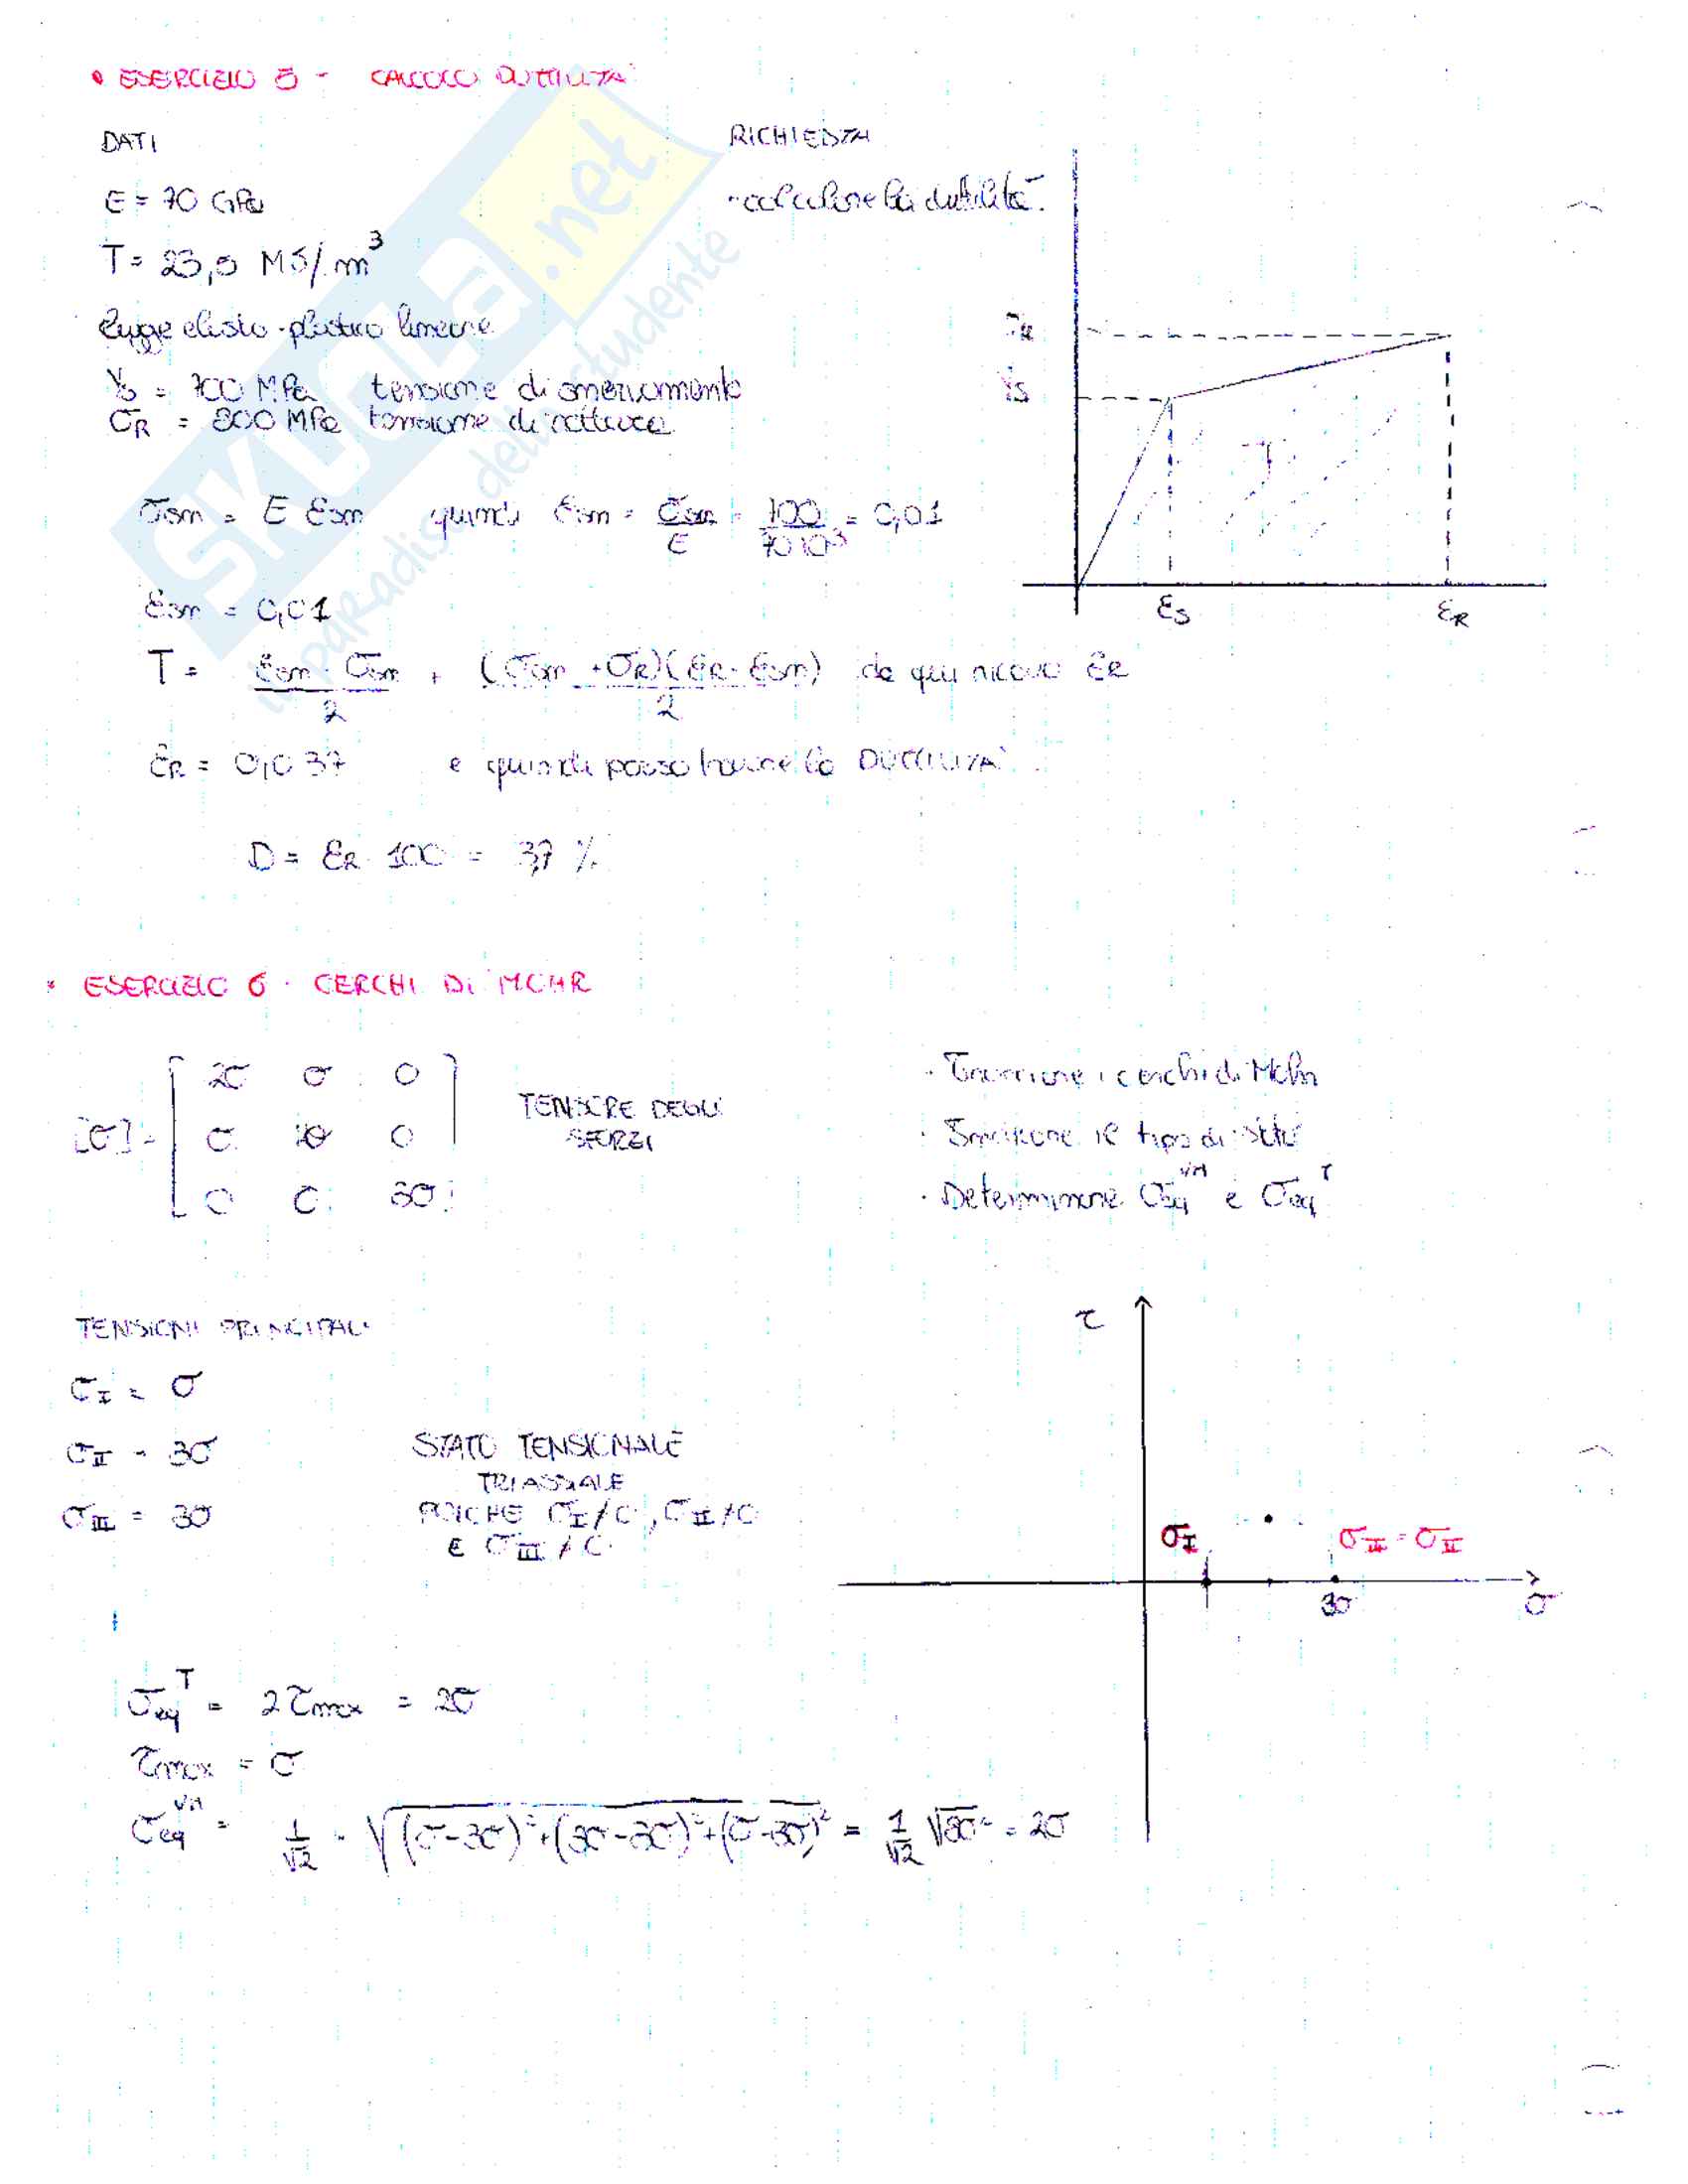 • ESERCIZIO 5 - CALCOLO DUTTILITA'
DATI
RICHIESTA
E = 70 GPa
- calcolare la duttilità.
T = 23,5 MJ/m³
legge elasto-plastico lineare
Ys = 700 MPa tensione di snervamento
σR = 800 MPa tensione di rottura
σR
Ys
T
εS
εR
σsm = E εsm quindi εsm = σsm/E = 700/70·10³ = 0,01
εsm = 0,01
T = (εsm · σsm)/2 + (σsm + σR)(εR - εsm)/2 da qui ricavo εR
εR = 0,037 e quindi posso trovare la DUTTILITA'.
D = εR · 100 = 3,7 %
SKUOLA.net
il paradiso dello studente
• ESERCIZIO 6 - CERCHI DI MOHR
[σ] =
2σ σ 0
σ 2σ 0
0 0 3σ
TENSORE DEGLI
SFORZI
· Tracciare i cerchi di Mohr
· Indicare il tipo di stato
· Determinare σeq^VM e σeq^T
TENSIONI PRINCIPALI
σI = σ
σII = 3σ
σIII = 3σ
STATO TENSIONALE
TRIASSIALE
POICHE σI ≠ 0, σII ≠ 0
E σIII ≠ 0.
τ
σI
σIII = σII
3σ
σ
σeq^T = 2τmax = 2σ
τmax = σ
σeq^VM = 1/√2 · √((σ-3σ)² + (3σ-3σ)² + (σ-3σ)²) = 1/√2 √8σ² = 2σ